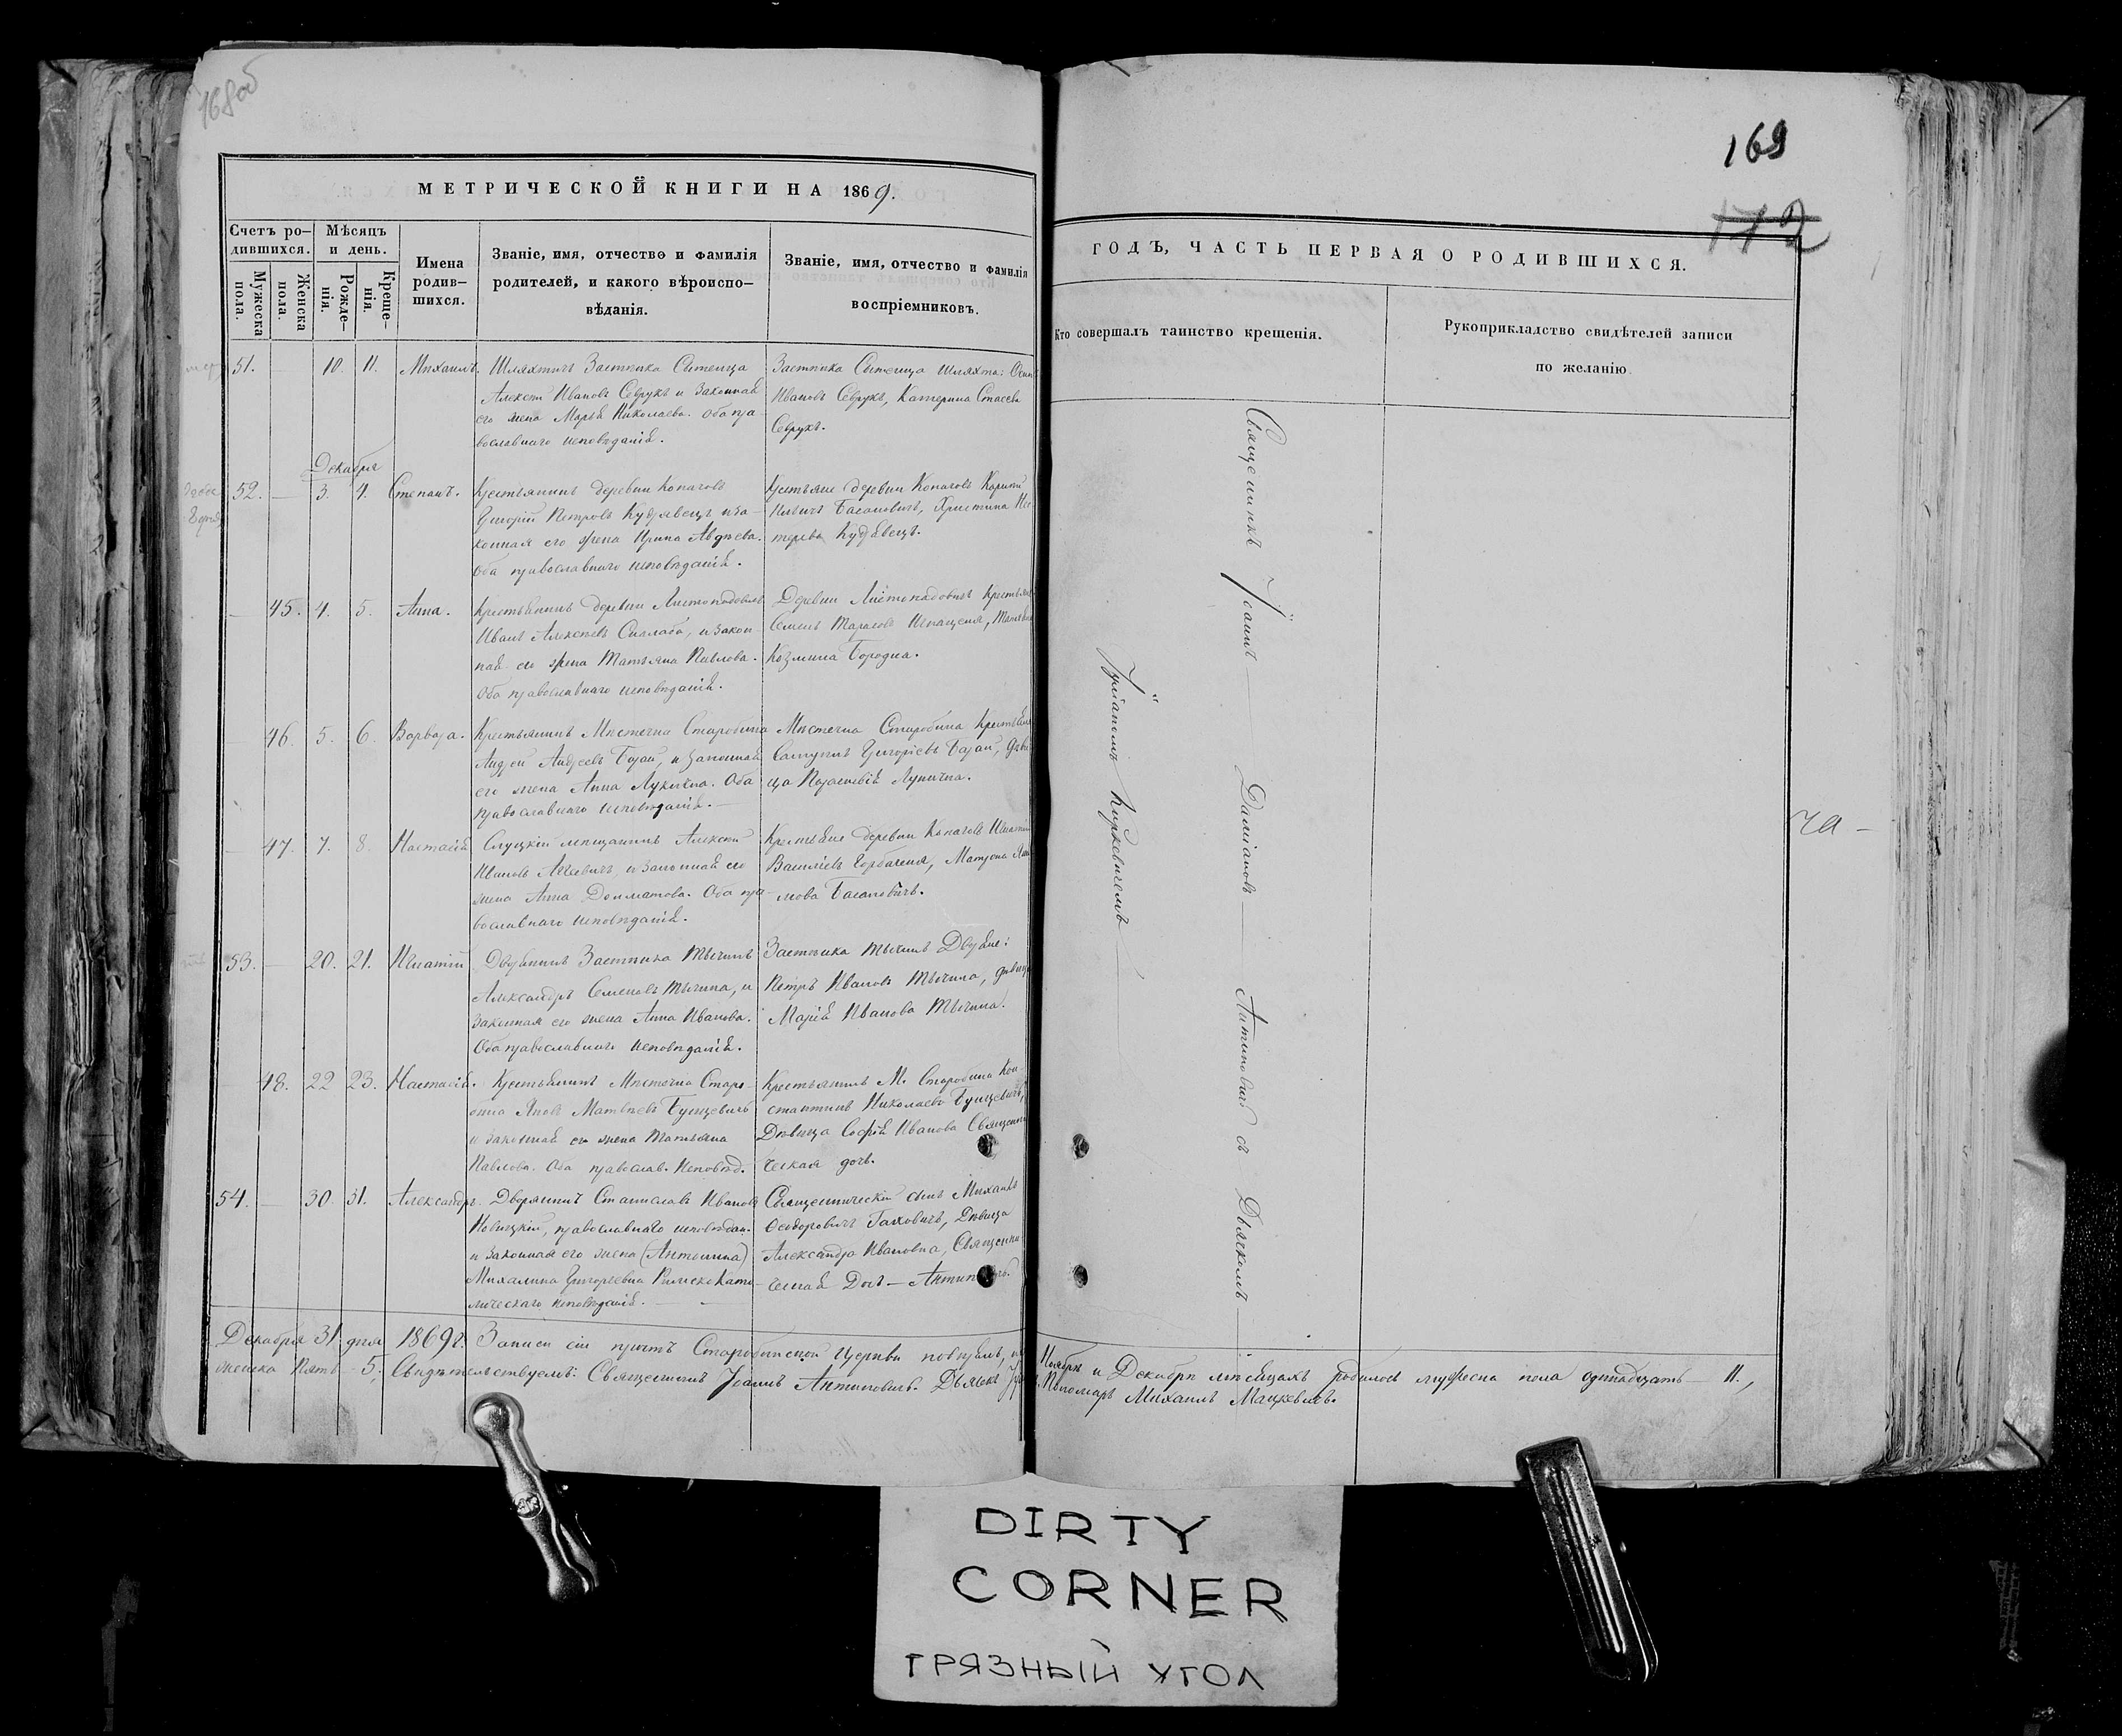 168 об
МЕТРИЧЕСКОЙ КНИГИ НА 1869.
Счетъ ро-
дившихся.
Мѣсяцъ
и день.
Мужеска
пола.
Женска
пола.
Рожде-
нія.
Креще-
нія.
Имена
родив-
шихся.
Званіе, имя, отчество и фамилія
родителей, и какого вѣроиспо-
вѣданія.
Званіе, имя, отчество и фамилія
воспріемниковъ.
51. — 10. 11. Михаилъ.
Шляхтичъ Застѣнка Сытеща
Алексѣй Ивановъ Севрукъ и законная
его жена Марья Николаева. Оба пра-
вославнаго исповѣданія.
Застѣнка Сытеща шляхта:
Ивановъ Севрукъ, Катерина
Севрукъ.
Декабря
52. — 3. 4. Степанъ.
Крестьянинъ деревни Копачовъ
Григорій Петровъ Кудравецъ и за-
конная его жена Ирина Авдѣева.
Оба православнаго исповѣданія.
Крестьяне деревни Копачовъ
Басановичъ, Христина Пе-
трова Кудравецъ.
— 45. 4. 5. Анна.
Крестьянинъ деревни Листопадовичъ
Иванъ Алексѣевъ и закон-
ная его жена Татьяна Павлова.
Оба православнаго исповѣданія.
Деревни Листопадовичъ Крестьяне
Семенъ Тарасовъ Татьяна
Козмина Бородка.
— 46. 5. 6. Варвара.
Крестьянинъ Мѣстечка Старобина
Андрей Андреевъ и законная
его жена Анна Лукична. Оба
православнаго исповѣданія. —
Мѣстечка Старобина Крестьяне
Григорьевъ дѣви-
ца
— 47. 7. 8. Настасія
Слуцкій мѣщанинъ Алексѣй
Ивановъ и законная его
жена Анна Долматова. Оба пра-
вославнаго исповѣданія.
Крестьяне деревни Копачовъ Игнатій
Василіевъ Горбаченя, Матрона
мова Басановичъ.
53. — 20. 21. Игнатій
Дворянинъ Застѣнка Тычинъ
Александръ Семеновъ Тычина, и
законная его жена Анна Иванова.
Оба православнаго исповѣданія.
Застѣнка Тычинъ Дворяне:
Петръ Ивановъ Тычина, дѣвица
Марія Иванова Тычина.
— 48. 22 23. Настасія.
Крестьянинъ Мѣстечка Старо-
бина Яковъ Матвѣевъ Бунцевичъ
и законная его жена Татьяна
Павлова. Оба православ. исповѣд.
Крестьянинъ М. Старобина Кон-
стантинъ Николаевъ Бунцевичъ,
Дѣвица Софія Иванова Священни-
ческая дочь.
54. — 30. 31. Александръ.
Дворянинъ Станиславъ Ивановъ
Новицкій, православнаго исповѣдан.
и законная его жена (Антонина)
Михалина Григорьевна Римско Като-
лическаго исповѣданія. — —
Священническій сынъ Михаилъ
Феодоровичъ Гахович, Дѣвица
Александра Ивановна, Священни-
ческая Дочь — Антиповичъ.
Декабря 31 дня 1869 г. Записи сіи притъ Старобинской Церкви повѣрялъ, въ
женска Пять — 5, Свидѣтельствуемъ: Священникъ Іоаннъ Антиповичъ. Дьячекъ
169
172
ГОДЪ, ЧАСТЬ ПЕРВАЯ О РОДИВШИХСЯ.
Кто совершалъ таинство крещенія.
Рукоприкладство свидѣтелей записи
по желанію.
Священникъ Іоаннъ — Даміановъ — Антиповичъ съ Дьячкомъ —
Киркевичемъ —
Ноябрѣ и Декабрѣ мѣсяцахъ родилось мужеска пола одинадцать — 11.,
Пономарь Михаилъ Мацкевичъ.
DIRTY
CORNER
ГРЯЗНЫЙ УГОЛ